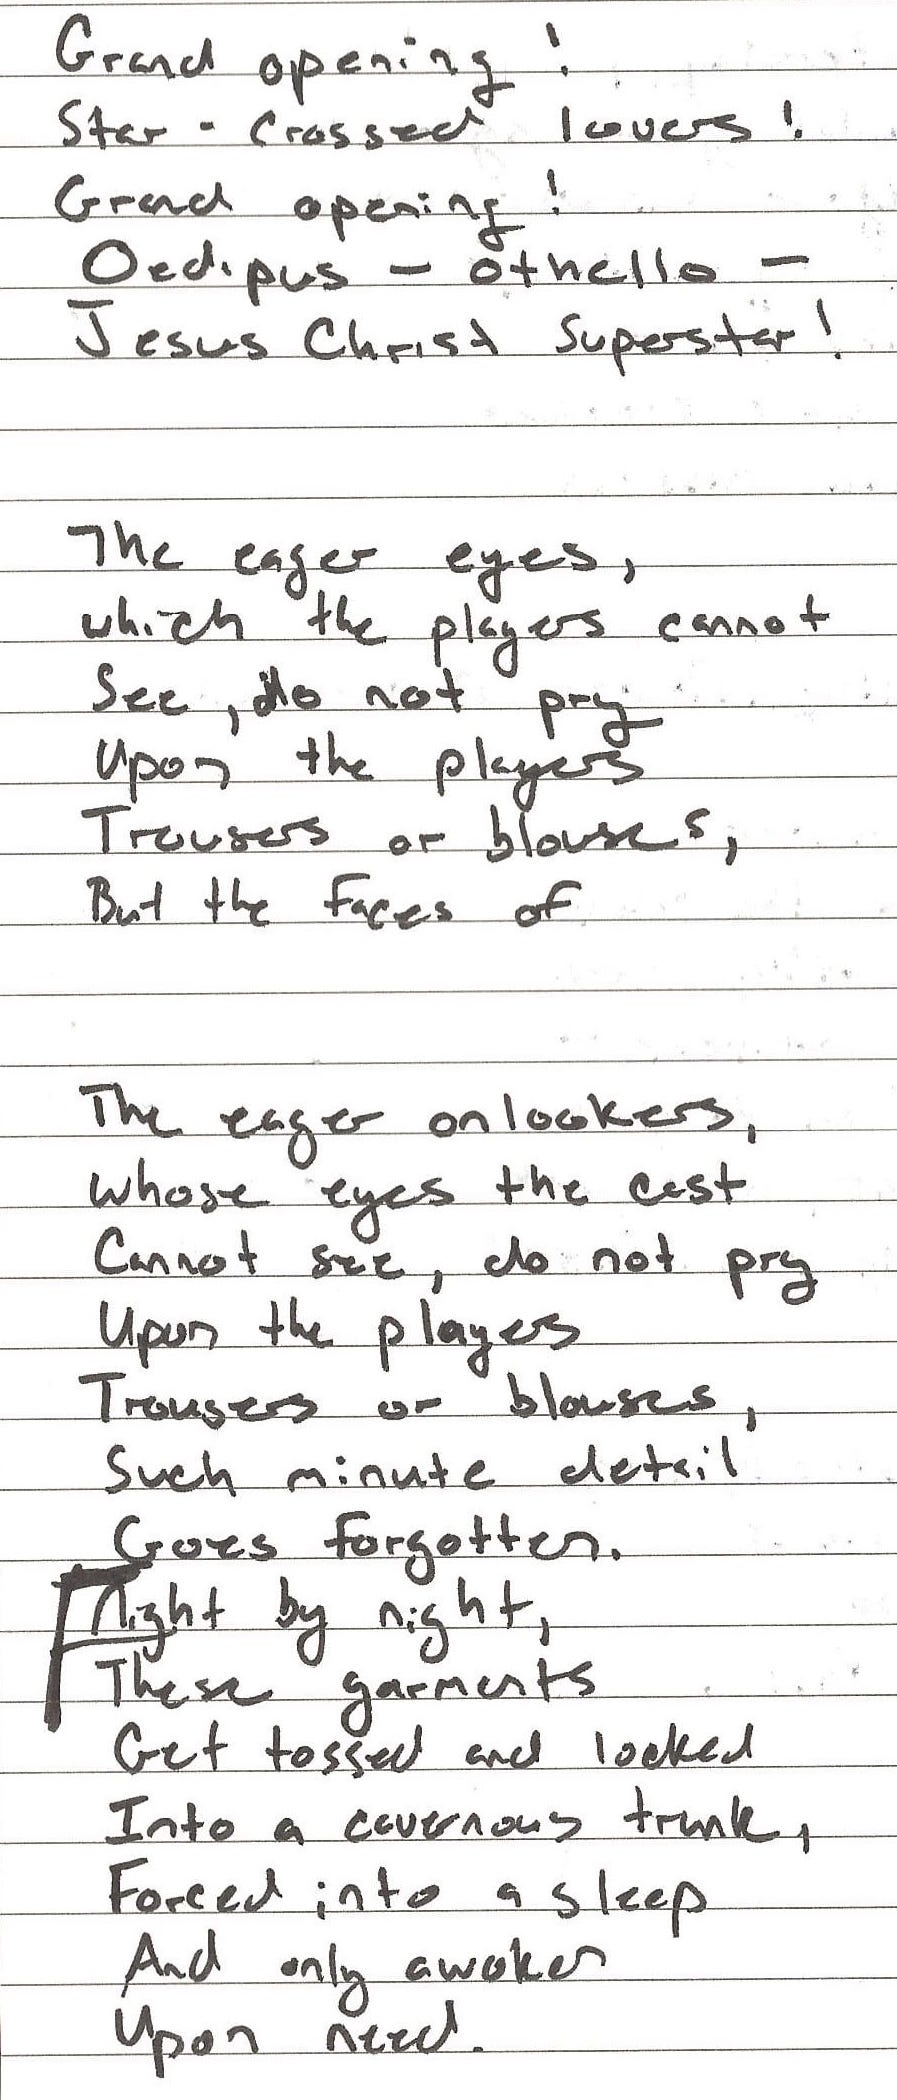 Grand opening!
Star-Crossed lovers!
Grand opening!
Oedipus — Othello —
Jesus Christ Superstar!
The eager eyes,
which the players cannot
See, do not pry
Upon the players
Trousers or blouses,
But the faces of
The eager onlookers,
Whose eyes the cast
Cannot see, do not pry
Upon the players
Trousers or blouses,
Such minute detail
Goes forgotten.
Night by night,
These garments
Get tossed and locked
Into a cavernous trunk,
Forced into a sleep
And only awoken
Upon need.